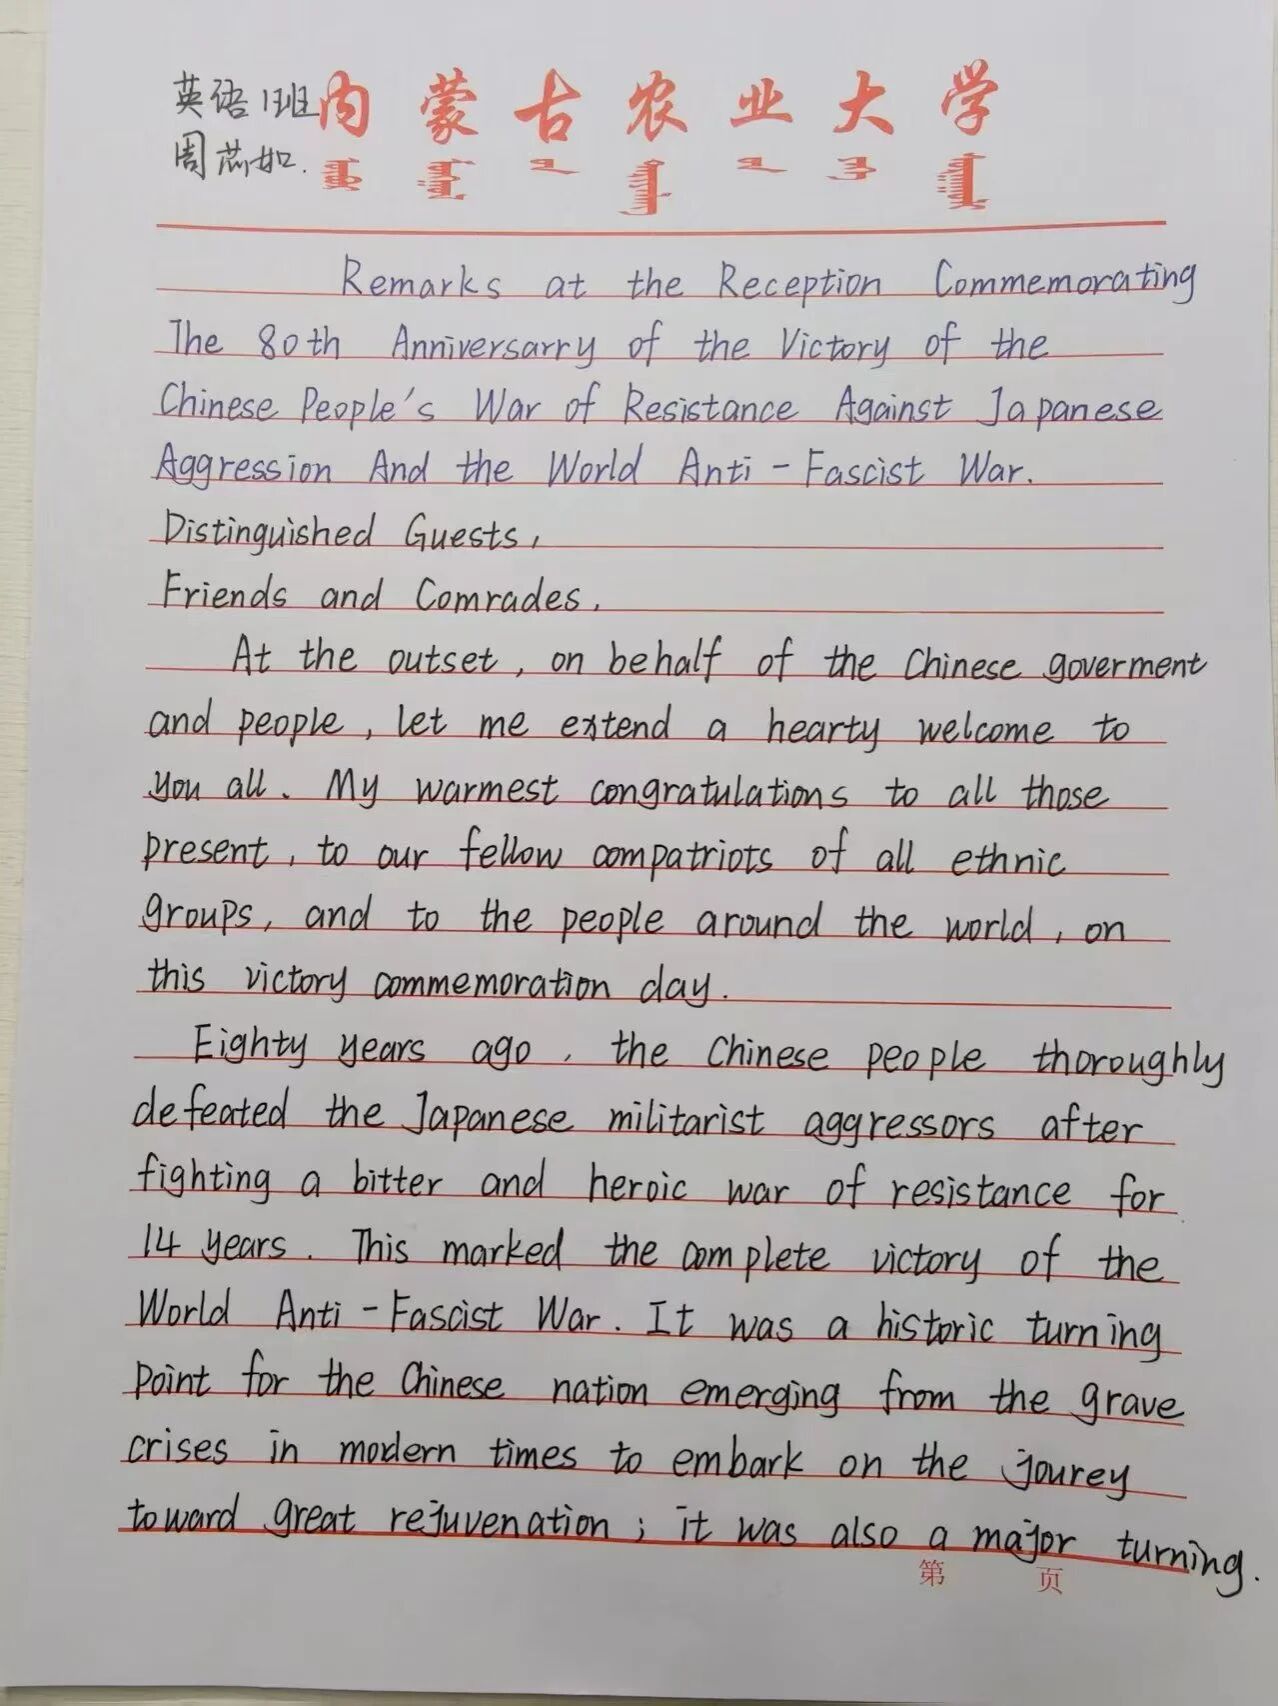 英语1班
周燕如.
内蒙古农业大学
Remarks at the Reception Commemorating
The 80th Anniversarry of the Victory of the
Chinese People's War of Resistance Against Japanese
Aggression And the World Anti-Fascist War.
Distinguished Guests,
Friends and Comrades,
At the outset, on behalf of the Chinese goverment
and people, let me extend a hearty welcome to
you all. My warmest congratulations to all those
present, to our fellow compatriots of all ethnic
groups, and to the people around the world, on
this victory commemoration day.
Eighty years ago, the Chinese people thoroughly
defeated the Japanese militarist aggressors after
fighting a bitter and heroic war of resistance for
14 years. This marked the complete victory of the
World Anti-Fascist War. It was a historic turning
point for the Chinese nation emerging from the grave
crises in modern times to embark on the jourey
toward great rejuvenation; it was also a major turning.
第 页